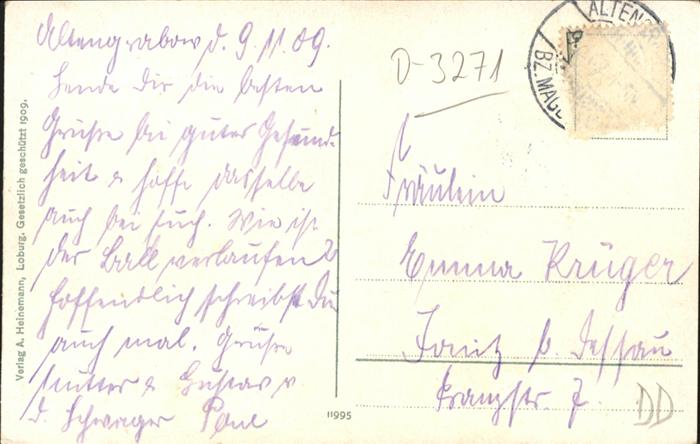 Altengrabow d. 9.11.09.
Sende Dir die besten
Grüße bei guter Gesund-
heit & hoffe dasselbe
auch bei Euch. Wie ist
der Ball verlaufen?
Hoffendlich schreibst Du
auch mal. Grüße
Mutter & Gustav v.
d. Schwager Paul
Verlag A. Heinemann, Loburg. Gesetzlich geschützt 1909.
11995
D-3271
ALTENGR
BZ. MAGD
Fräulein
Emma Krüger
b. Dessau
7.
DD